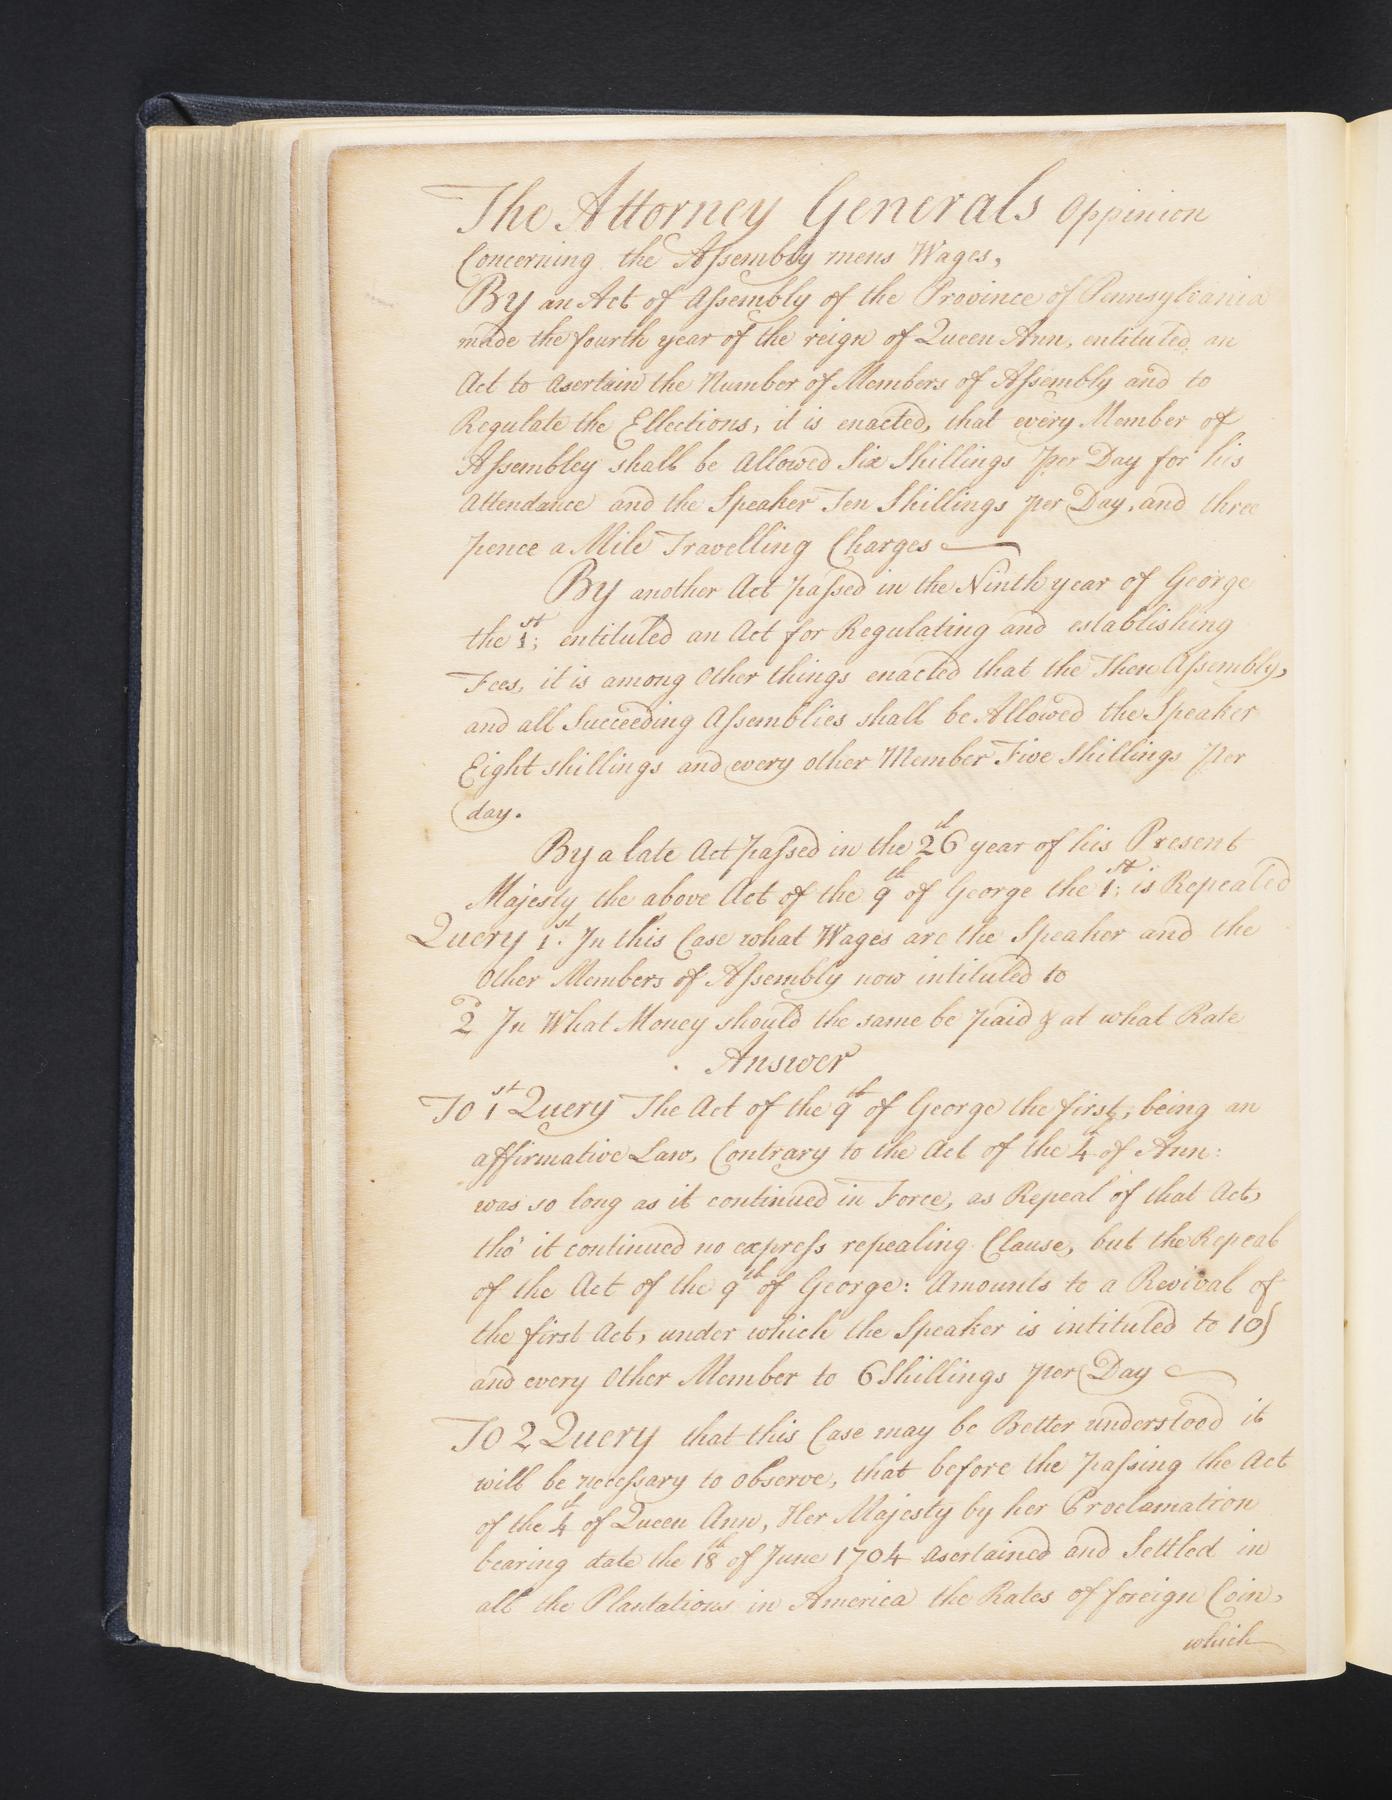 The Attorney Generals Oppinion
Concerning the Assembly mens Wages,
By an Act of Assembly of the Province of Pennsylvania
made the fourth year of the reign of Queen Ann, entituled an
Act to Asertain the Number of Members of Assembly and to
Regulate the Ellections, it is enacted, that every Member of
Assembley shall be Allowed Six Shillings per Day for his
Attendance and the Speaker Ten Shillings per Day, and three
pence a Mile Travelling Charges
By another Act passed in the Ninth year of George
the 1st; entituled an Act for Regulating and establishing
Fees, it is among Other things enacted that the Then Assembly,
and all Succeeding Assemblies shall be Allowed the Speaker
Eight shillings and every other Member Five Shillings Per
day.
By a late Act passed in the 26th year of his Present
Majesty the above Act of the 9th of George the 1st: is Repealed
Query 1st. In this Case what Wages are the Speaker and the
Other Members of Assembly now intituled to
2d In What Money should the same be paid & at what Rate
Answer
To 1st Query The Act of the 9th of George the first; being an
affirmative Law, Contrary to the Act of the 4th of Ann:
was so long as it continued in Force, as Repeal of that Act,
tho' it continued no express repealing Clause, but the Repeal
of the Act of the 9th of George: Amounts to a Revival of
the first Act, under which the Speaker is intituled to 10s
and every Other Member to 6 Shillings per Day
To 2 Query that this Case may be Better understood it
will be necessary to observe, that before the passing the Act
of the 4th of Queen Ann, Her Majesty by her Proclamation
bearing date the 18th of June 1704 Asertained and Settled in
all the Plantations in America the Rates of foreign Coin,
which